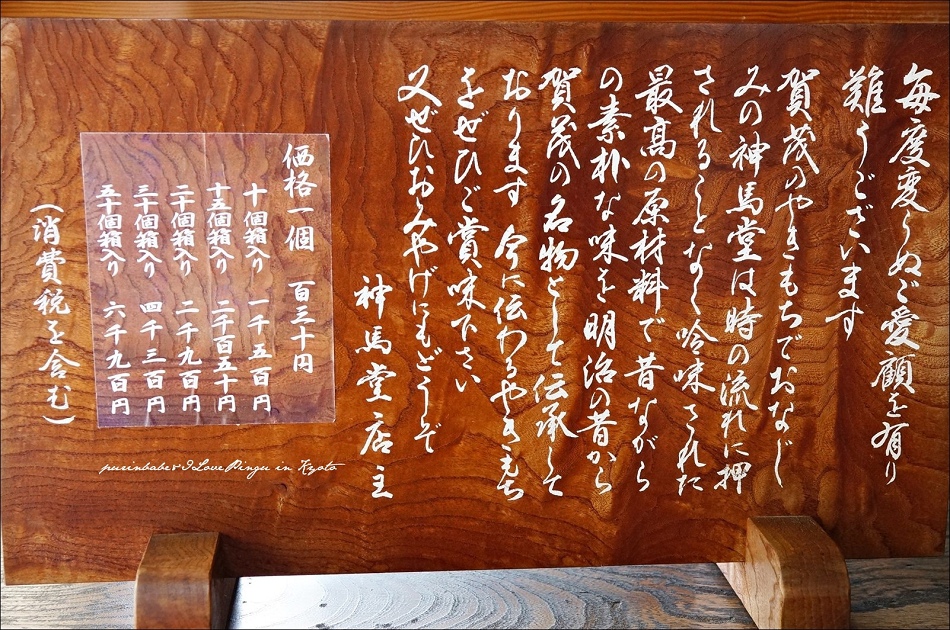 毎度変らぬご愛顧を有り
難うございます
賀茂のやきもちでおなじ
みの神馬堂は時の流れに押
されることなく吟味された
最高の原材料で昔ながら
の素朴な味を明治の昔から
賀茂の名物として伝承して
おります 今に伝わるやきもち
をぜひご賞味下さい
又ぜひおみやげにもどうぞ
神馬堂店主
価格一個 百三十円
十個箱入り 一千五百円
十五個箱入り 二千百五十円
二十個箱入り 二千九百円
三十個箱入り 四千三百円
五十個箱入り 六千九百円
(消費税を含む)
purinbabe & I Love Pingu in Kyoto